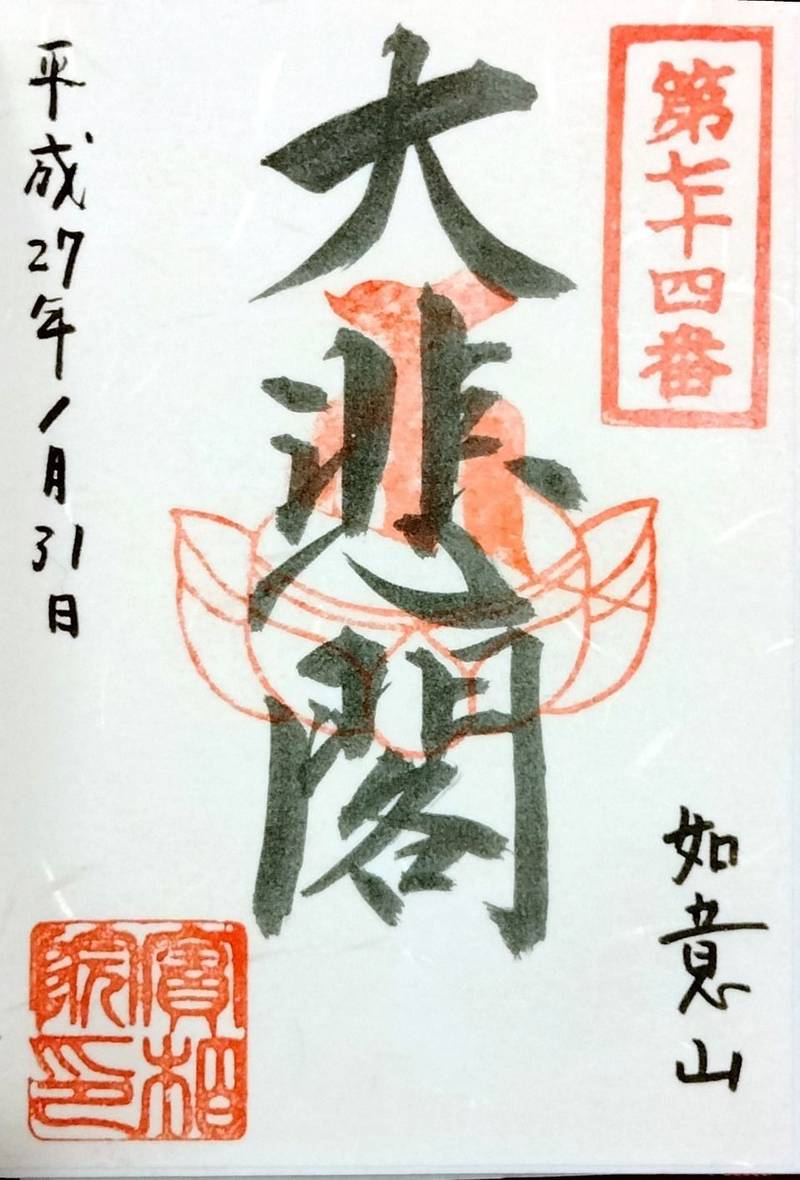 第七十四番
如意山
大悲閣
平成27年1月31日
寳相
院印